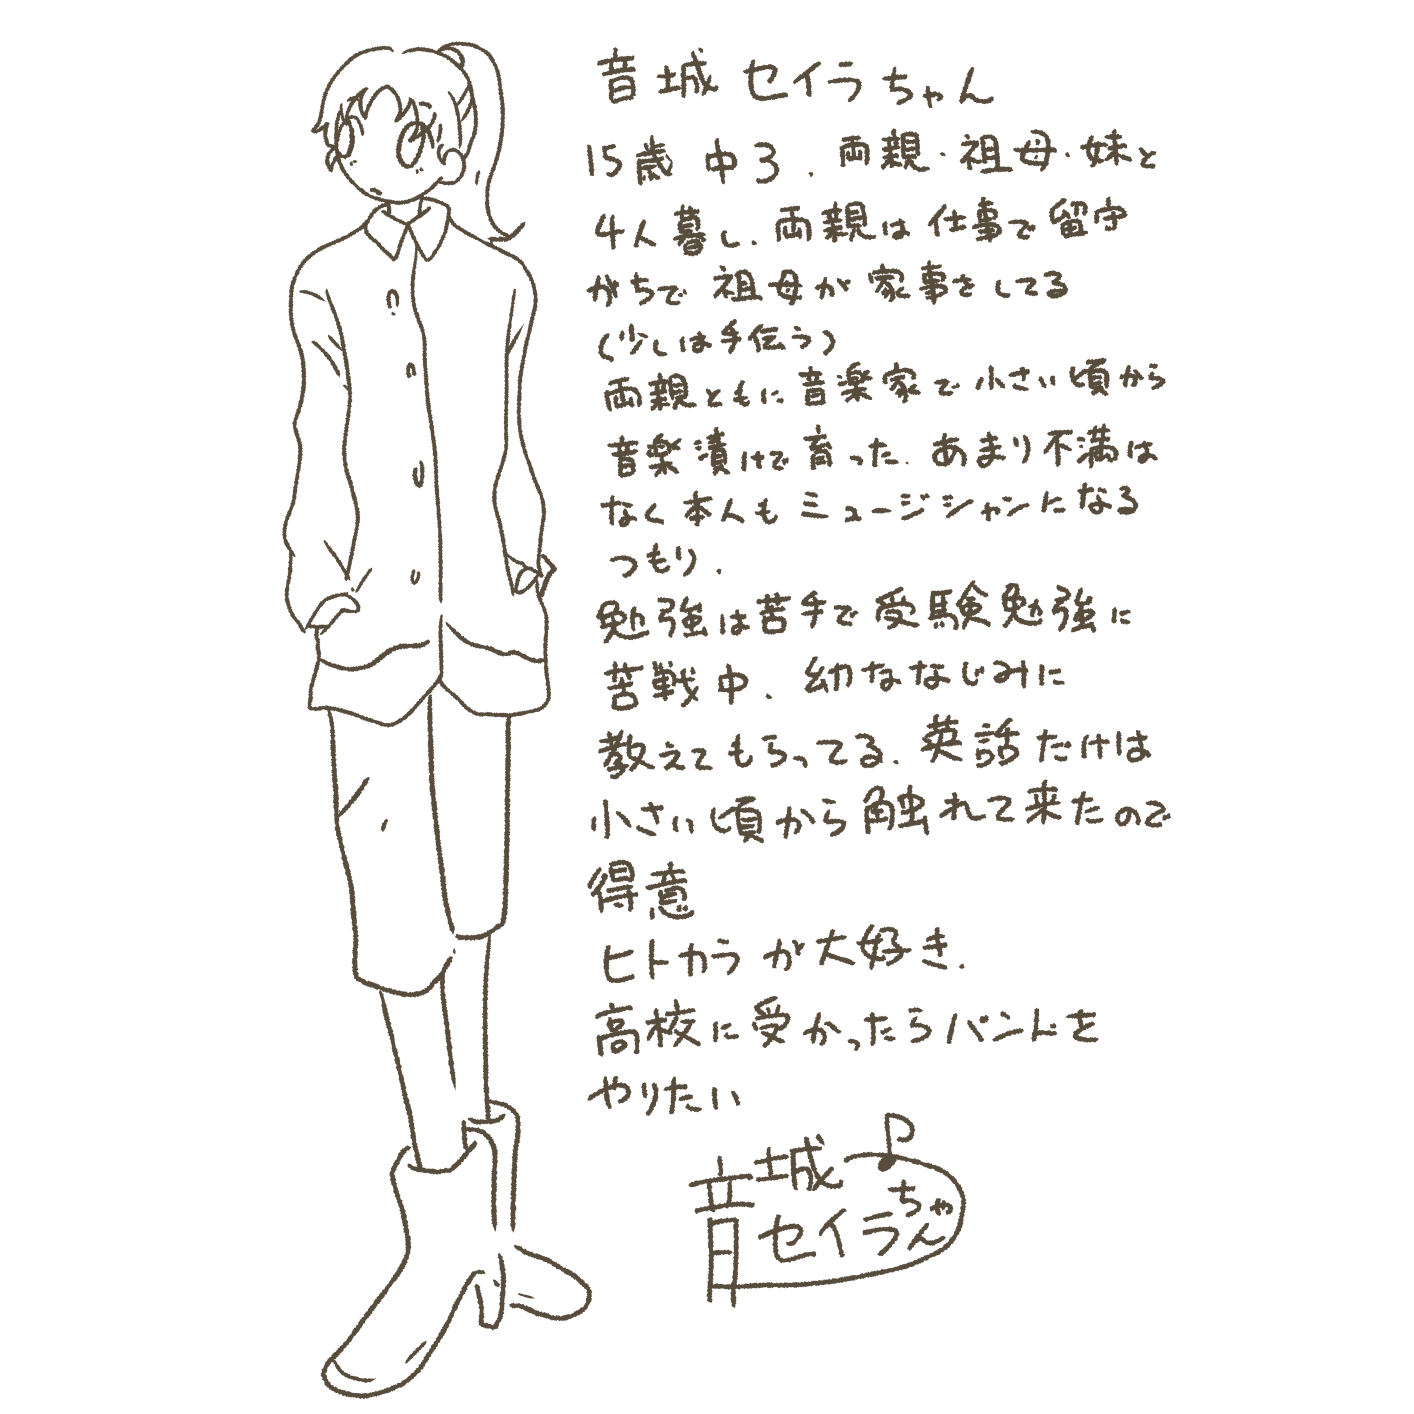 音城 セイラちゃん
15歳 中3. 両親・祖母・妹と
4人暮し. 両親は仕事で留守
がちで 祖母が家事をしてる
(少しは手伝う)
両親ともに音楽家で小さい頃から
音楽漬けで育った. あまり不満は
なく本人もミュージシャンになる
つもり.
勉強は苦手で受験勉強に
苦戦中. 幼ななじみに
教えてもらってる. 英語だけは
小さい頃から触れて来たので
得意
ヒトカラが大好き.
高校に受かったらバンドを
やりたい
音城
セイラちゃん